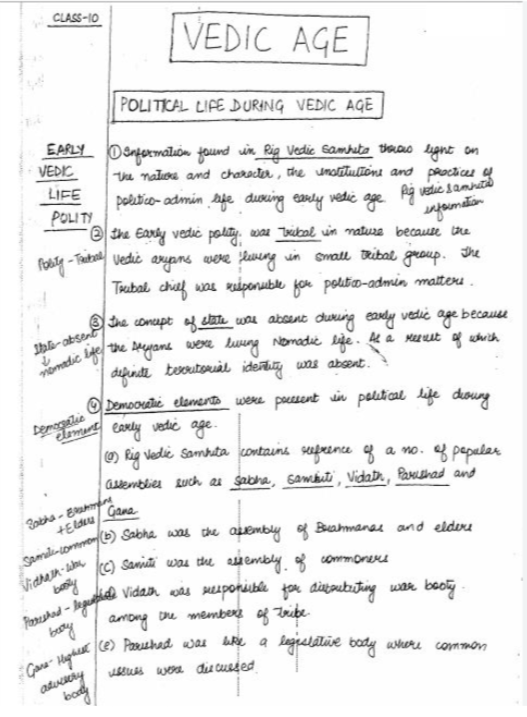 CLASS-10
VEDIC AGE
POLITICAL LIFE DURING VEDIC AGE
EARLY
VEDIC
LIFE
POLITY
① Information found in Rig Vedic Samhita throws light on
the nature and character, the institutions and practices of
politico-admin life during early vedic age. Rig vedic samhita
information
② The Early vedic polity, was Tribal in nature because the
Polity - Tribal
Vedic aryans were living in small tribal group. The
Tribal chief was responsible for politico-admin matters.
③ The concept of state was absent during early vedic age because
State-absent
↓
nomadic life
the Aryans were living Nomadic life. As a result of which
definite territorial identity was absent.
④ Democratic elements were present in political life during
Democratic
element
early vedic age.
(a) Rig Vedic Samhita contains refrence of a no. of popular
assemblies such as Sabha, Samiti, Vidath, Parishad and
Gana
Sabha - Brahmans
+ Elders
(b) Sabha was the assembly of Brahmanas and elders
Samiti-common
(c) Samiti was the assembly of commoners
Vidhath-war
booty
Vidath was responsible for distributing war booty
among the members of Tribe.
Parishad - legislative
body
(e) Parishad was like a legislative body where common
issues were discussed.
Gana - Highest
advisory
body